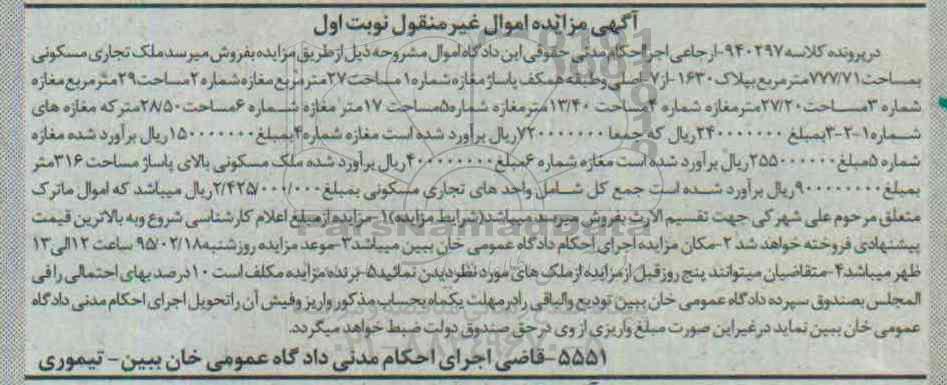 آگهی مزایده اموال غیرمنقول نوبت اول
در پرونده کلاسه ۹۴۰۲۹۷-ارجاعی اجرا احکام مدنی حقوقی این دادگاه اموال مشروحه ذیل از طریق مزایده بفروش میرسد ملک تجاری مسکونی
بمساحت ۷۷۷/۷۱ متر مربع پیلاک ۱۶۳۰-از ۷-اصلی و طبقه همکف پاساژ مغازه شماره ۱ مساحت ۲۷ متر مربع مغازه شماره ۲ مساحت ۲۹ متر مربع مغازه
شماره ۳ مساحت ۲۷/۲۰ متر مغازه شماره ۴ مساحت ۱۳/۴۰ متر مغازه شماره ۵ مساحت ۱۷ متر مغازه شماره ۶ مساحت ۲۸/۵۰ متر که مغازه های
شماره ۱-۲-۳ بمبلغ ۲۴۰۰۰۰۰۰۰ ریال که جمعا ۷۲۰۰۰۰۰۰۰ ریال برآورد شده است مغازه شماره ۴ بمبلغ ۱۵۰۰۰۰۰۰۰ ریال برآورد شده مغازه
شماره ۵ مبلغ ۲۵۵۰۰۰۰۰۰ ریال برآورد شده است مغازه شماره ۶ مبلغ ۴۰۰۰۰۰۰۰۰ ریال برآورد شده ملک مسکونی بالای پاساژ مساحت ۳۱۶ متر
بمبلغ ۹۰۰۰۰۰۰۰۰ ریال برآورد شده است جمع کل شامل واحد های تجاری مسکونی بمبلغ ۲/۴۲۵/۰۰۰/۰۰۰ ریال میباشد که اموال ماترک
متعلق مرحوم علی شهرکی جهت تقسیم الارث بفروش میرسد میباشد(شرایط مزایده) ۱-مزایده از مبلغ اعلام کارشناسی شروع و به بالاترین قیمت
پیشنهادی فروخته خواهد شد ۲-مکان مزایده اجرای احکام دادگاه عمومی خان ببین میباشد ۳-موعد مزایده روز شنبه ۹۵/۰۲/۱۸ ساعت ۱۲ الی ۱۳
ظهر میباشد ۴-متقاضیان میتوانند پنج روز قبل از مزایده از ملک های مورد نظر دیدن نمائید ۵-برنده مزایده مکلف است ۱۰ درصد بهای احتمالی را فی
المجلس بصندوق سپرده دادگاه عمومی خان ببین تودیع والباقی را در مهلت یکماه بحساب مذکور واریز و فیش آن را تحویل اجرای احکام مدنی دادگاه
عمومی خان ببین نماید در غیر این صورت مبلغ واریزی از وی در حق صندوق دولت ضبط خواهد میگردد.
۵۵۵۱-قاضی اجرای احکام مدنی دادگاه عمومی خان ببین- تیموری
ParsNamadData